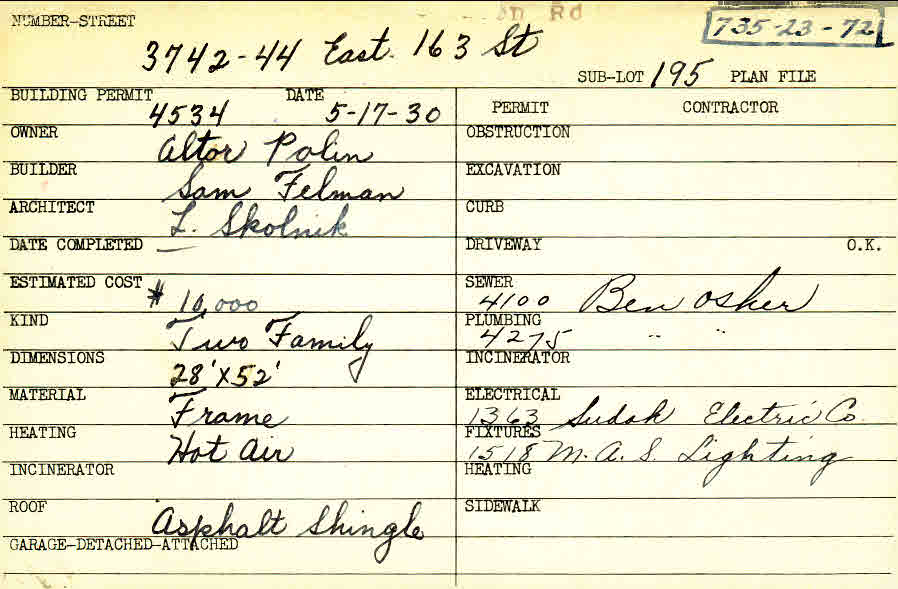 on Rd
NUMBER-STREET
735-23-72
3742-44 East. 163 St
SUB-LOT 195 PLAN FILE
BUILDING PERMIT 4534 DATE 5-17-30
PERMIT CONTRACTOR
OWNER Altor Polin
OBSTRUCTION
BUILDER Sam Felman
EXCAVATION
ARCHITECT L. Skolnik
CURB
DATE COMPLETED —
DRIVEWAY O.K.
ESTIMATED COST # 10,000
SEWER 4100 Ben Osher
KIND Two Family
PLUMBING 4275 " "
DIMENSIONS 28'X52'
INCINERATOR
MATERIAL Frame
ELECTRICAL 1363 Sudak Electric Co.
HEATING Hot Air
FIXTURES 1518 M.A.S. Lighting
INCINERATOR
HEATING
ROOF Asphalt Shingle
SIDEWALK
GARAGE-DETACHED-ATTACHED